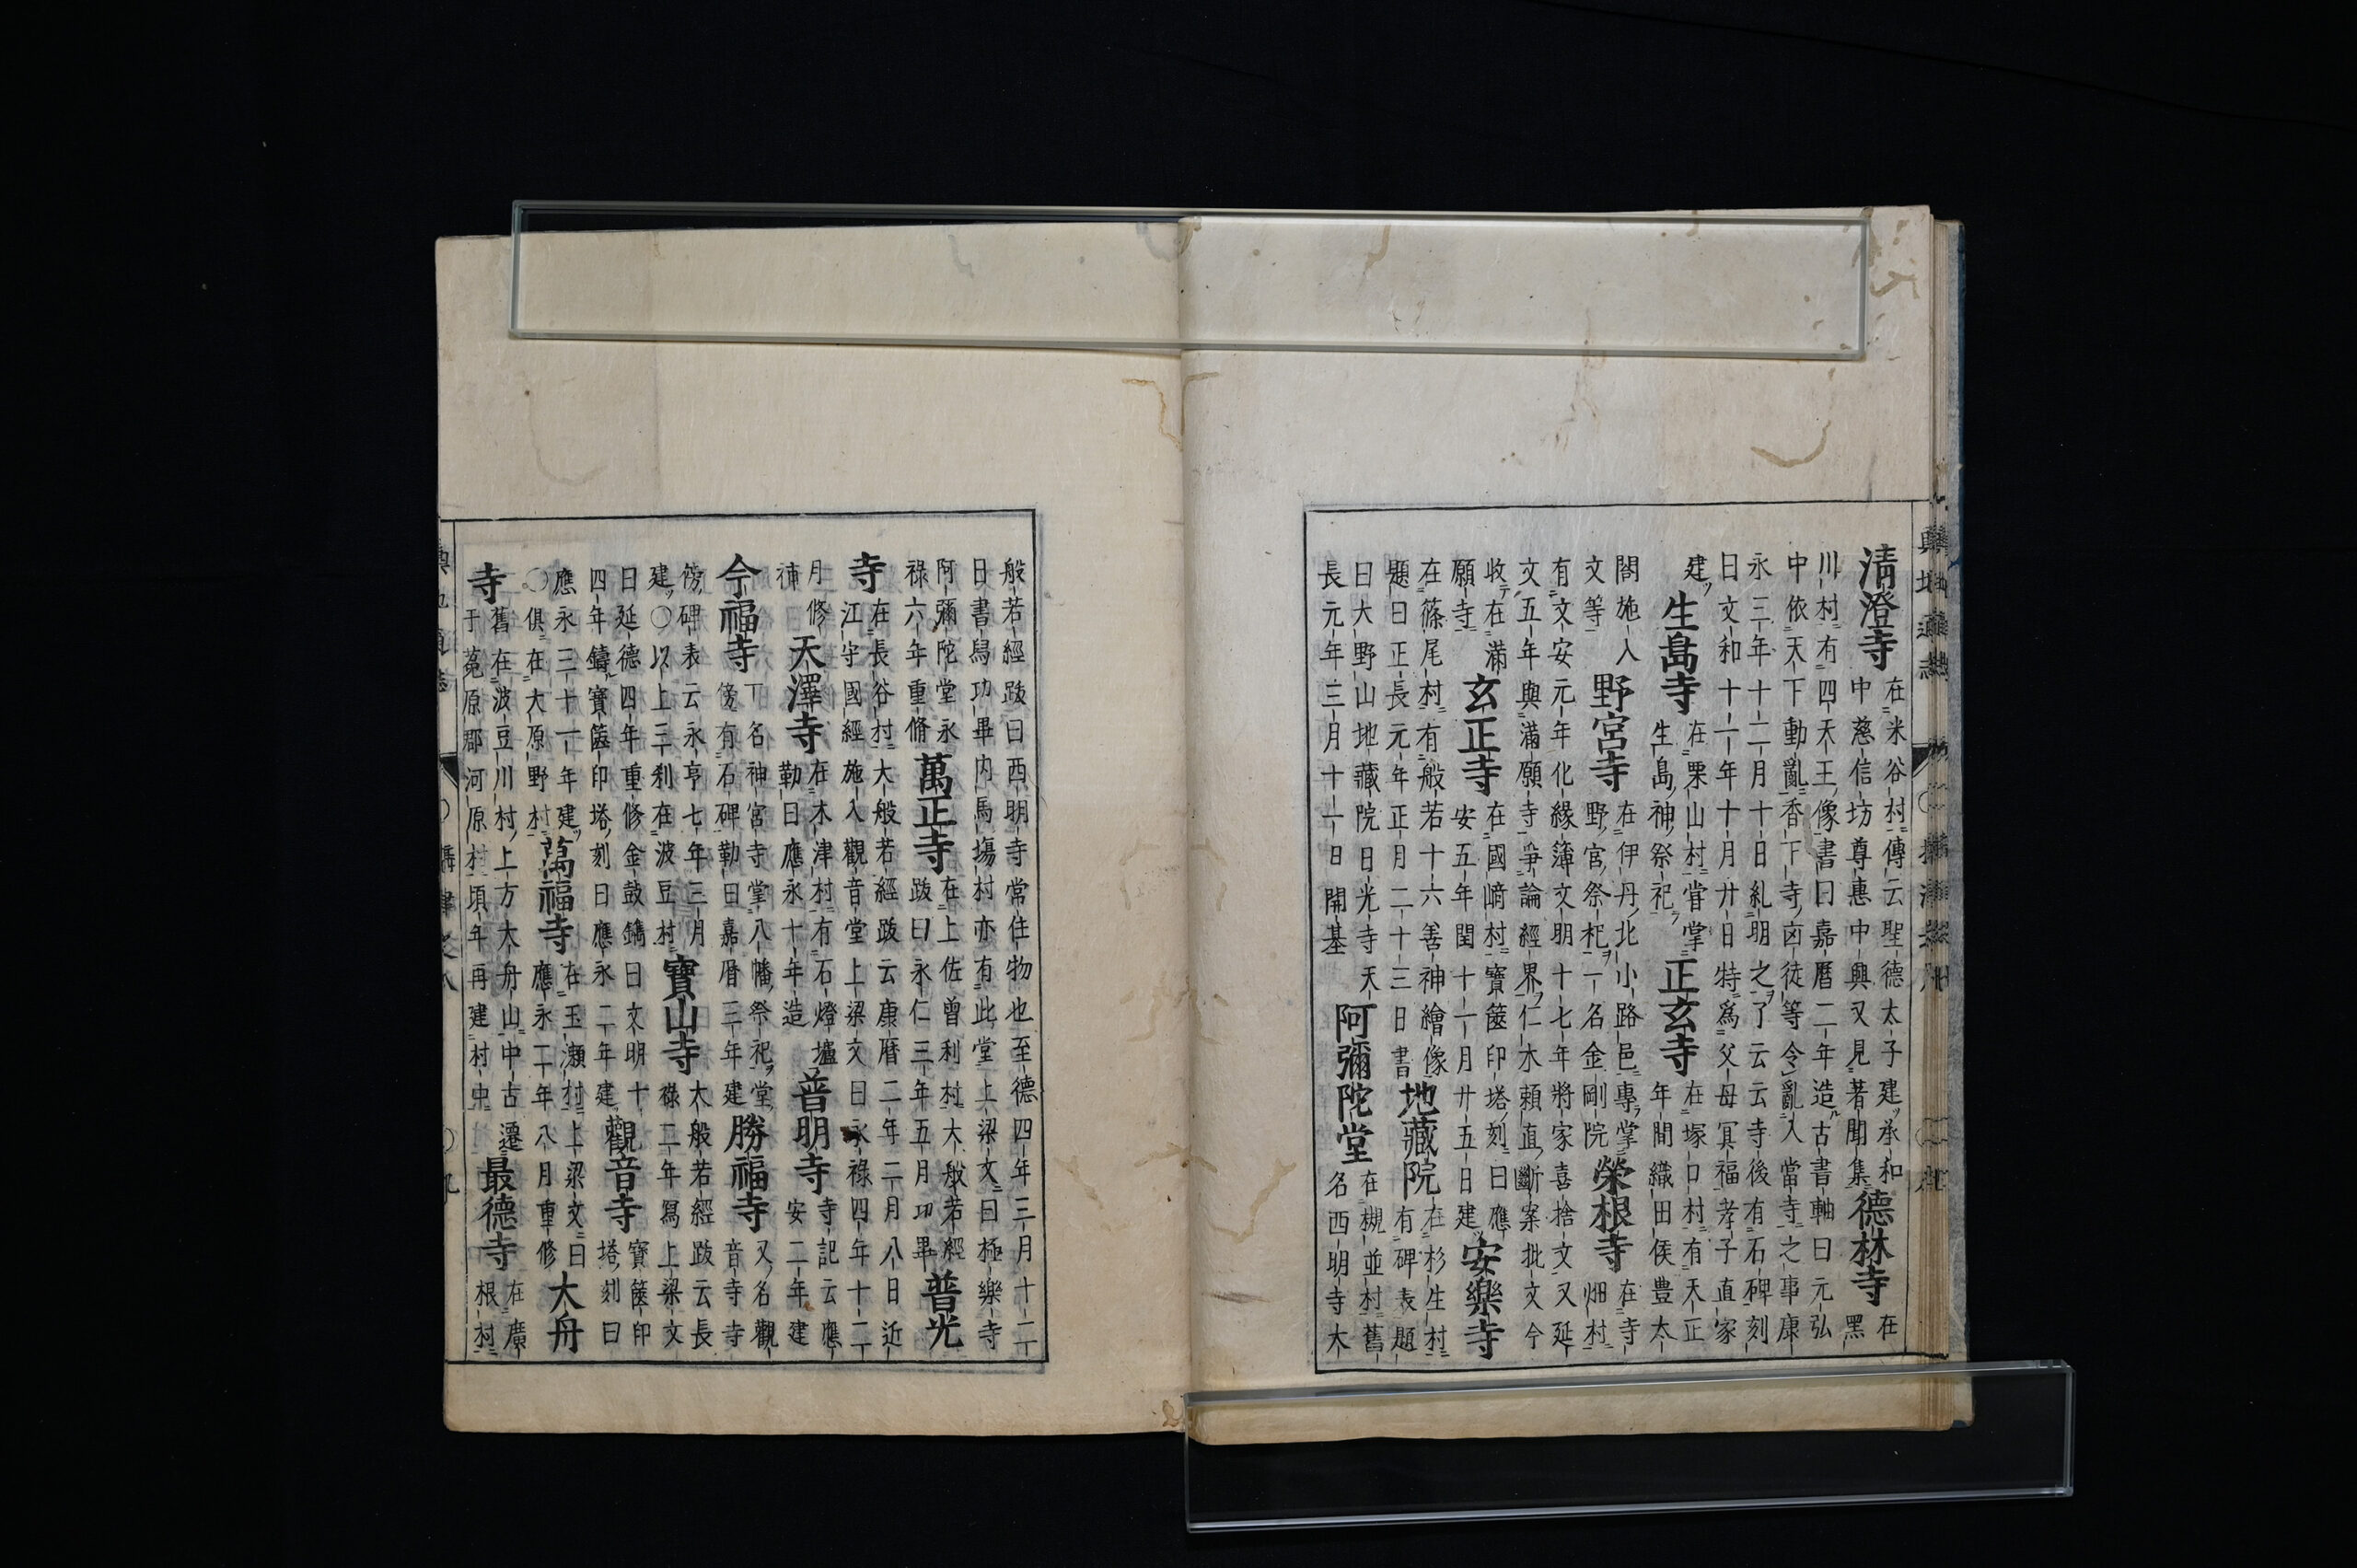 清澄寺
在米谷村傳云聖德太子建承和
中慈信坊尊惠中興又見著聞集
德林寺
在
黑
川村有四天王像書曰嘉曆二年造古書軸曰元弘
中依天下動亂香下寺凶徒等令亂入當寺之事康
永三年十二月十日糺明之了云云寺後有石碑刻
曰文和十一年十月廿日特爲父母冥福孝子直家
建
生島寺
在栗山村甞掌
生島神祭祀
正玄寺
在塚口村有天正
年間織田侯豊太
閤施入
文等
野宮寺
在伊丹北小路邑專掌
野宮祭祀一名金剛院
榮根寺
在寺
畑村
有文安元年化緣簿文明十七年將家喜捨文又延
文五年與滿願寺爭論經界仁木頼直斷案批文今
收在滿
願寺
玄正寺
在國﨑村寶篋印塔刻曰應
安五年閏十一月廿五日建
安樂寺
在篠尾村有般若十六善神繪像
題曰正長元年正月二十三日書
地藏院
在杉生村
有碑表題
曰大野山地藏院日光寺天
長元年三月十一日開基
阿彌陀堂
在槻並村舊
名西明寺大
般若經跋曰西明寺常住物也至德四年三月十二
日書寫功畢内馬塲村亦有此堂上梁文曰極樂寺
阿彌陀堂永
祿六年重脩
萬正寺
在上佐曾利村大般若經
跋曰永仁三年五月功畢
普光
寺
在長谷村大般若經跋云康曆二年二月八日近
江守國經施入觀音堂上梁文曰永祿四年十二
月修
補
天澤寺
在木津村有石燈壚
勒曰應永十年造
普明寺
寺記云應
安二年建
今福寺
一名神宮寺掌八幡祭祀堂
傍有石碑勒曰嘉曆三年建
勝福寺
又名觀
音寺寺
傍碑表云永亨七年三月
建〇以上三刹在波豆村
寶山寺
大般若經跋云長
祿二年寫上梁文
曰延德四年重修金鼓鐫曰文明十
四年鑄寶篋印塔刻曰應永二年建
觀音寺
寶篋印
塔刻曰
應永三十一年建
〇俱在大原野村
萬福寺
在玉瀬村上梁文曰
應永二年八月重修
大舟
寺
舊在波豆川村上方大舟山中古遷
于菟原郡河原村頃年再建村中
最德寺
在廣
根村